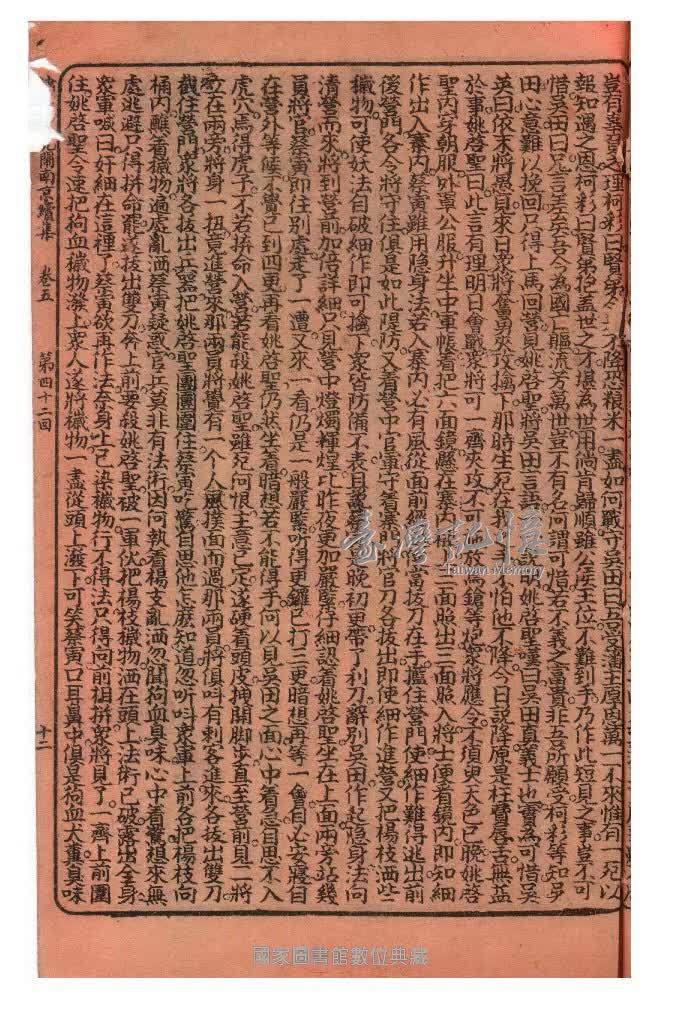 豈有棄言之理柯彩曰賢弟今不降恐粮米一盡如何戰守吳田曰吾受藩主原恩萬一不來惟有一死以
報知遇之恩柯彩曰賢弟抱盖世之才堪為世用倘肯歸順雖公矦王位不難到手乃作此短見之事豈不可
惜吳田曰兄言差矣吾今為國亡軀流芳萬世豈不有名何謂可惜若不義之富貴非吾所願受柯彩等知吳
田心意難以挽回只得上馬回營見姚啓聖將吳田言說明姚啓聖嘆曰吳田真義士也實為可惜吳
英曰依末將愚見來日眾將奮勇來攻擒下那時生死在我手怕他不降今日說降原是枉費唇舌無益
於事姚啓聖曰此言有理明日會戰眾將可一齊夾攻不可放鎗等炮眾將應令不須臾天色已晚姚啓
聖內穿朝服外罩公服升坐中軍帳着把六面鏡懸在寨三面照出三面照入將士便看鏡內即知細
作出入寨內蔡寅雖用隐身法若入寨內必有風從面前經當拔刀在手攔住營門使細作難得逃出前
後營門各令將守住俱是如此隄防又着營中官軍守着寨門將官刀各拔出即使細作進營又把楊枝洒些
穢物可使妖法自破細作即可擒下眾皆防備不表且說蔡晚初更帶了利刀辭別吳田作起隐身法向
清營而來將到營前加倍詳細只見營中燈燭輝煌比昨夜更加嚴緊仔細認看姚啓聖坐在上面兩旁站幾
員將官蔡寅即往別處走了一遭又來一看仍是一般嚴緊听得更鑼已打三更暗想再等一會自必安寢目
在營外等候不覺已到四更再看姚啓聖仍然坐着暗想若不能得手何以見吳田之面心中着急自思不入
虎穴焉得虎子不若拚命入營若能殺姚啓聖雖死何恨主意已定遂硬着頭皮抻開脚步直至營前見二將
立在兩旁將身一扭竟進營來那兩員將覺有一个人風撲面而過那兩員將俱呌有刺客進來各拔出雙刀
截住營門眾將各拔出兵器把姚啓聖團團圍住蔡寅吃驚自思他怎麽知道忽听呌眾軍上前各把楊枝向
桶內蘸着穢物遍處亂洒蔡寅疑惑官兵莫非有法術因何執着楊支亂洒忽聞狗血臭味心中着驚想來無
處逃避只得拚命罷遂拔出雙刀奔上前要殺姚啓聖被一軍伙把楊枝穢物洒在頭上法術已破露出全身
眾軍喊曰奸細在這裡了蔡寅欲再作法奈身上已染穢物行不得法只得向前相拚眾將見了一齊上前圍
住姚啓聖令速把狗血穢物潑上眾人遂將穢物一盡從頭上潑下可笑蔡寅口耳鼻中俱是狗血犬糞臭味
閩南京續集 卷五 第四十二回 十二
臺灣記憶
Taiwan Memory
國家圖書館數位典藏